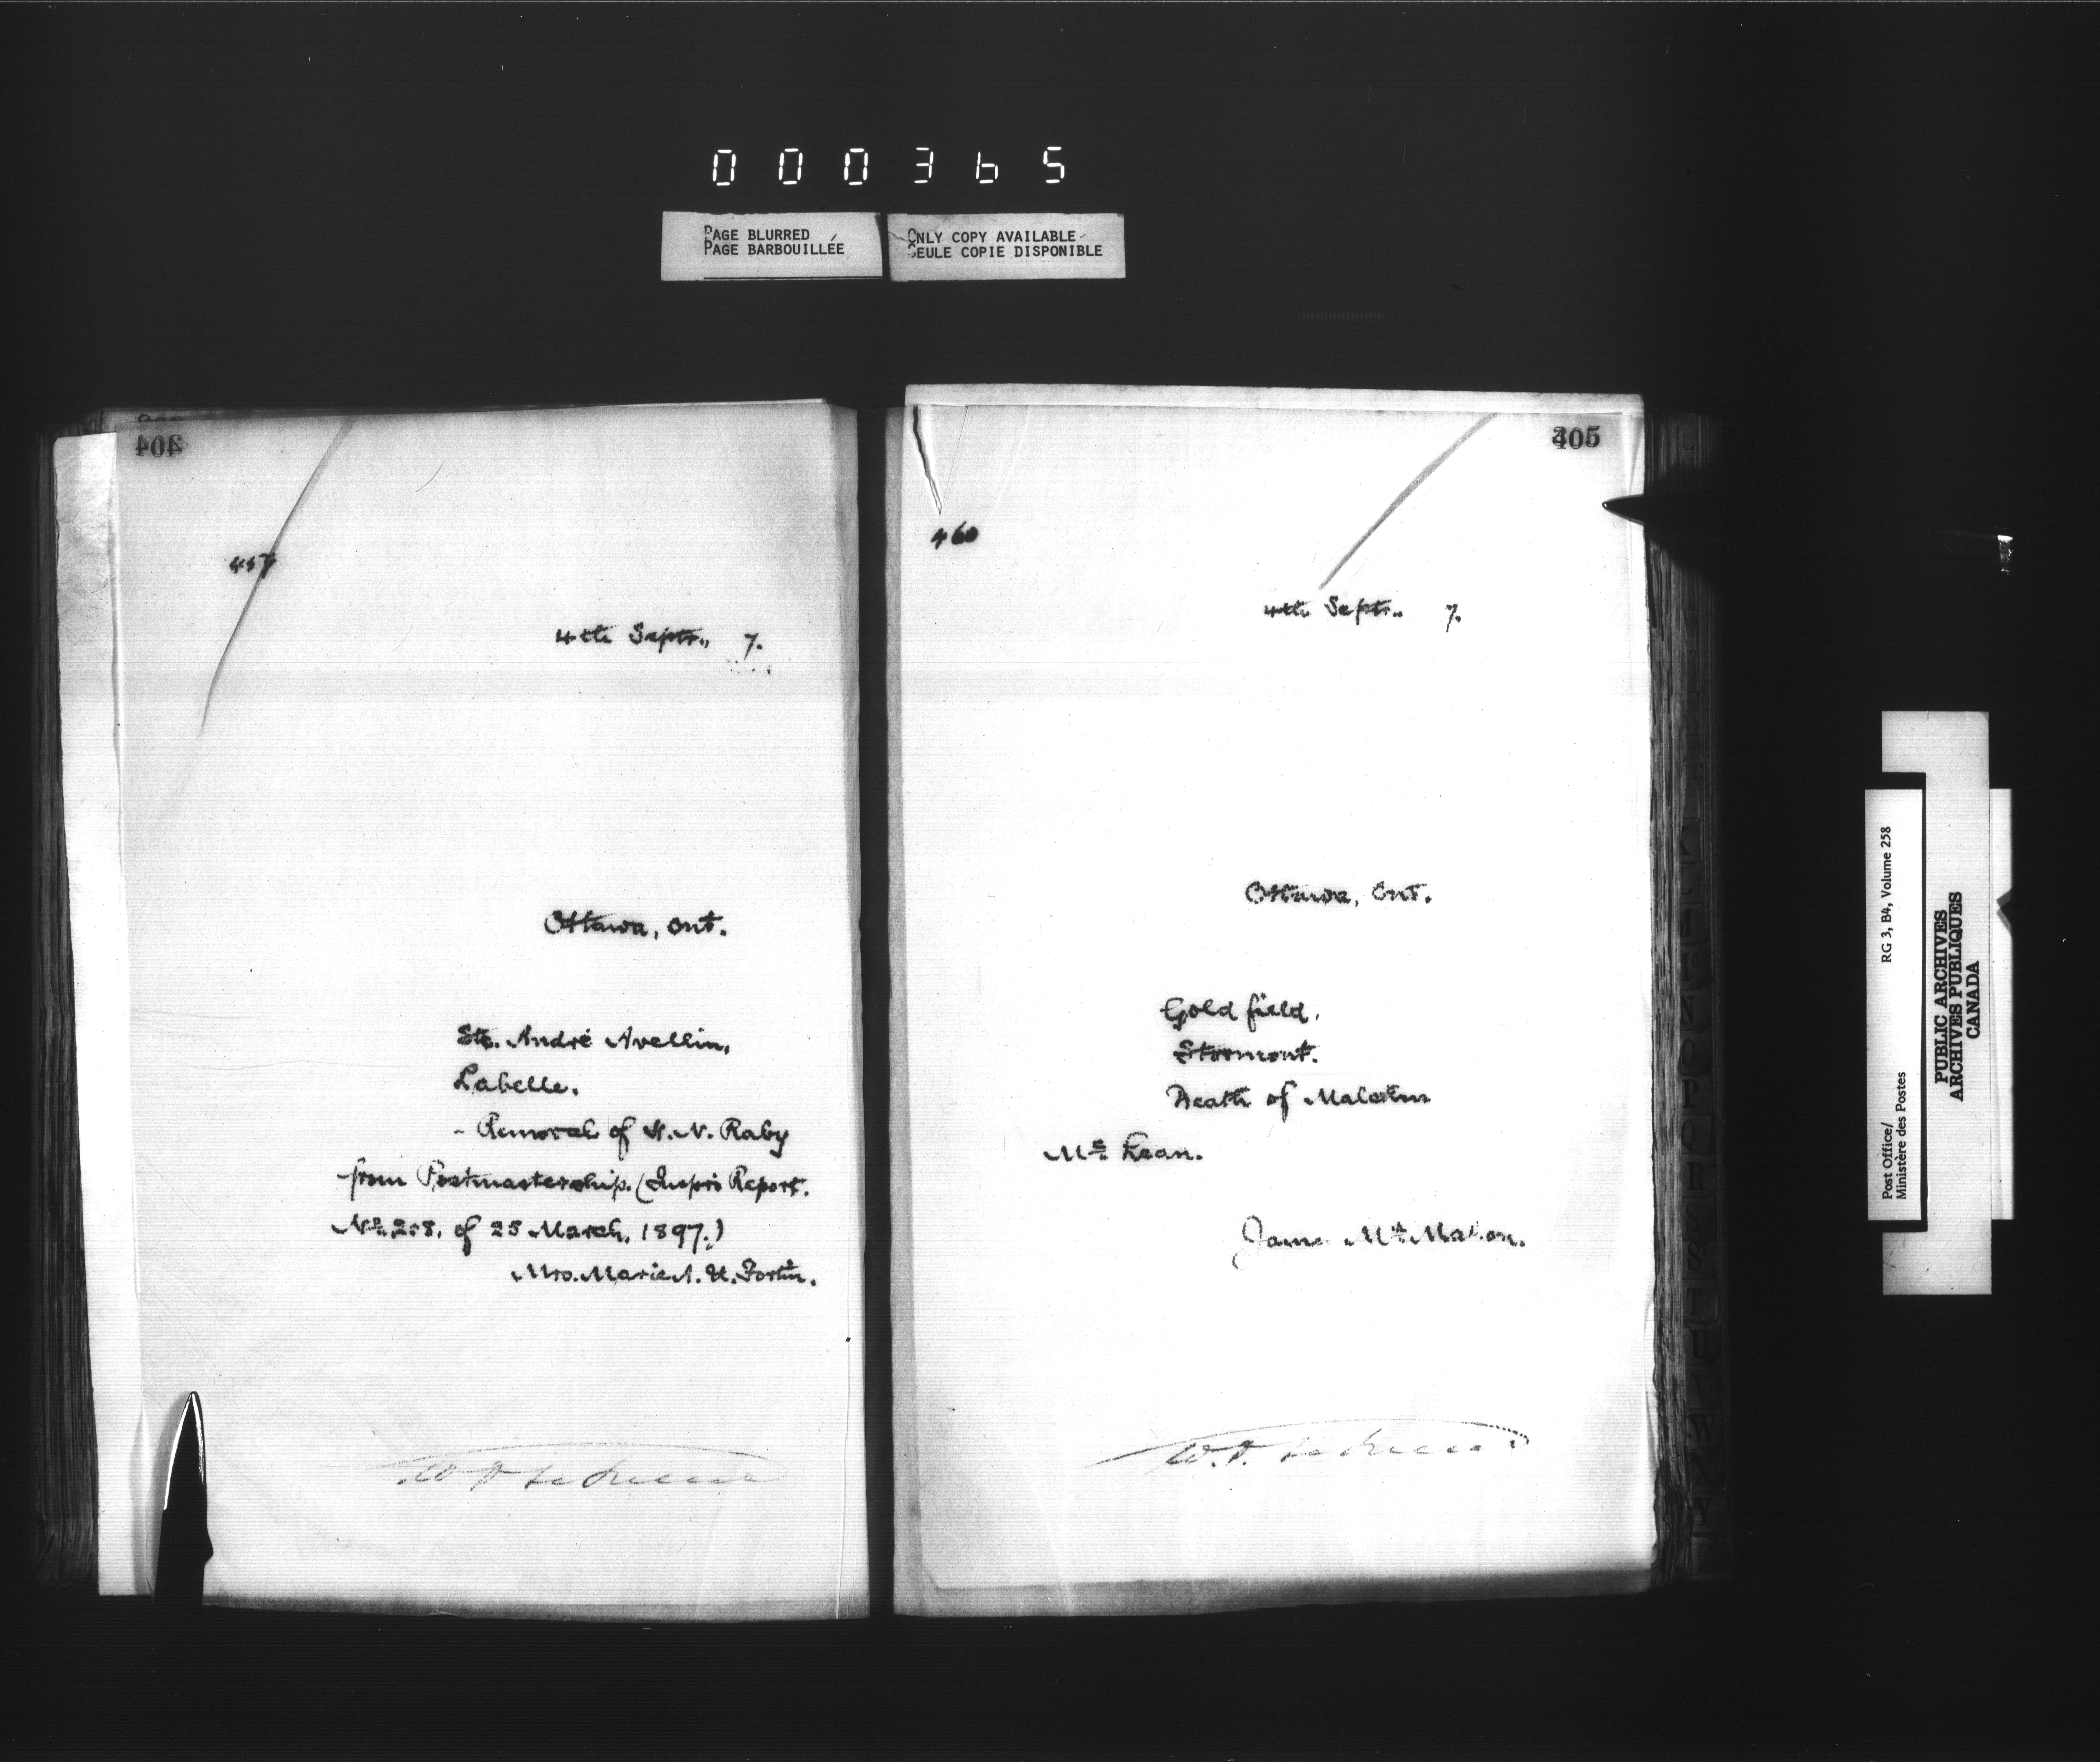 000365
PAGE BLURRED
PAGE BARBOUILLÉE
ONLY COPY AVAILABLE
SEULE COPIE DISPONIBLE
404
457
4th Septr., 7.
Ottawa, Ont.
Ste. André Avellin,
Labelle.
- Removal of H. N. Raby
from Postmastership. (Inspr's Report.
No. 208. of 25 March, 1897.)
Mrs. Marie A. H. Fortin.
405
460
4th Septr., 7.
Ottawa, Ont.
Gold field,
Stormont.
Death of Malcolm
Mc Lean.
James Mc Mahon.
Post Office/
Ministère des Postes
RG 3, B4, Volume 258
PUBLIC ARCHIVES
ARCHIVES PUBLIQUES
CANADA